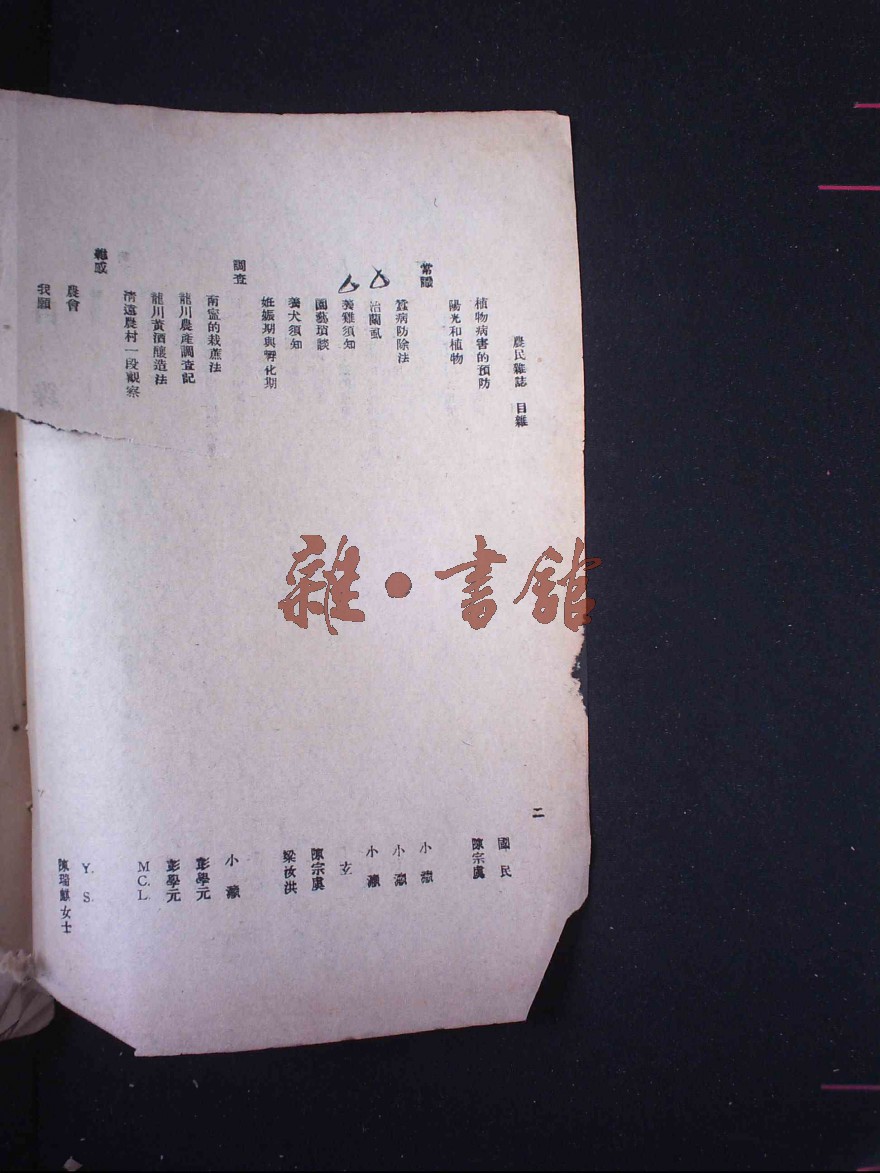 農民雜誌　目雜　二
植物病害的預防　國民
陽光和植物　陳宗虞
常識
蠶病防除法　小瀠
治關虱　小瀠
養雞須知　小瀠
園藝瑣談　玄
養犬須知　陳宗虞
妊娠期與孵化期　梁汝洪
調查
南寧的栽蔗法　小瀠
龍川農產調查記　彭學元
龍川黃酒釀造法　彭學元
清遠農村一段觀察　M.C.L.
雜或
農會　Y. S.
我願　陳瑞麒女士
雜·書館